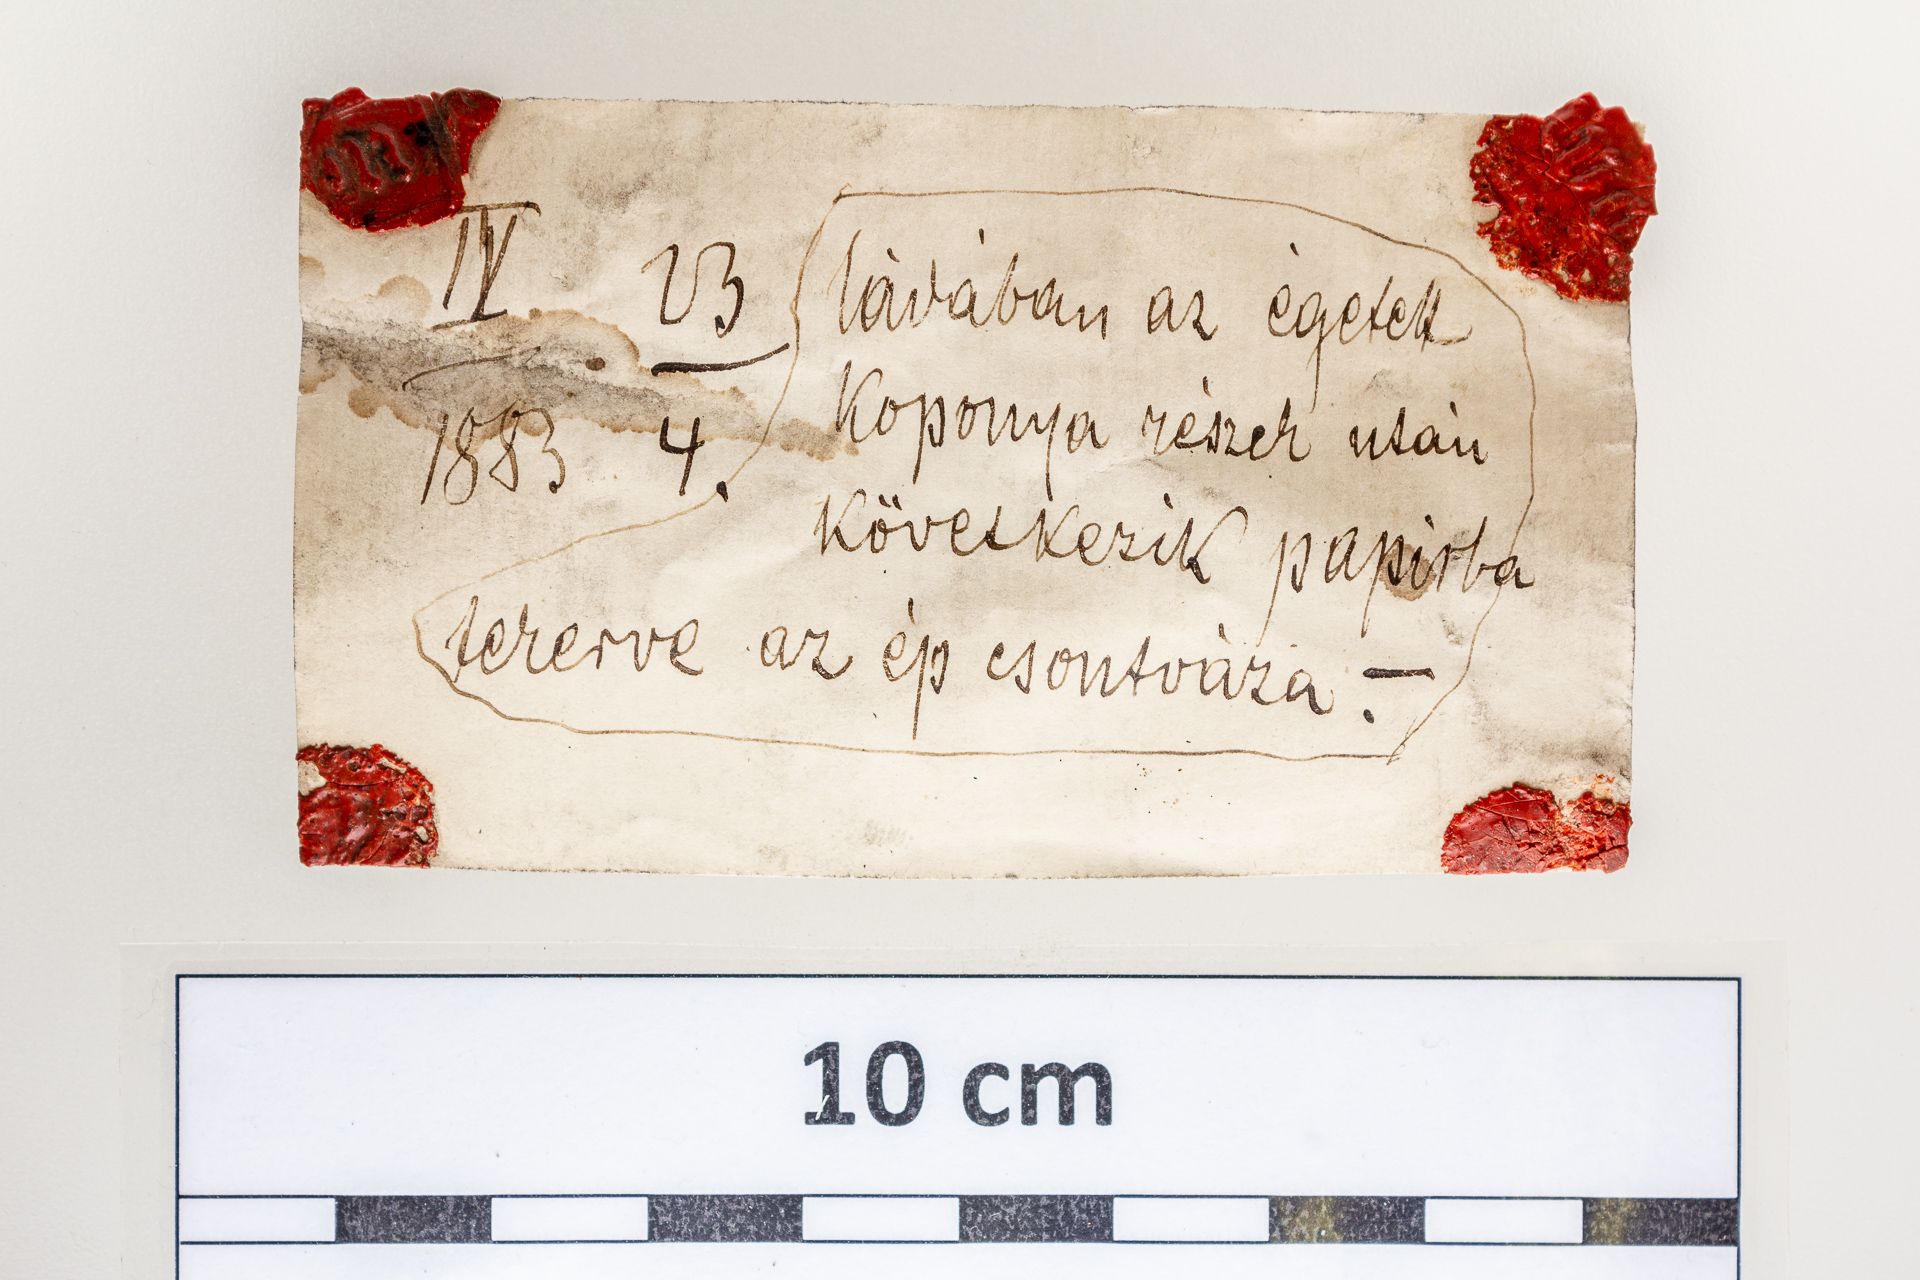 IV 23
1883 4.
ládában az égetett
koponya részek után
következik papirba
tekerve az ép csontváza. —
10 cm